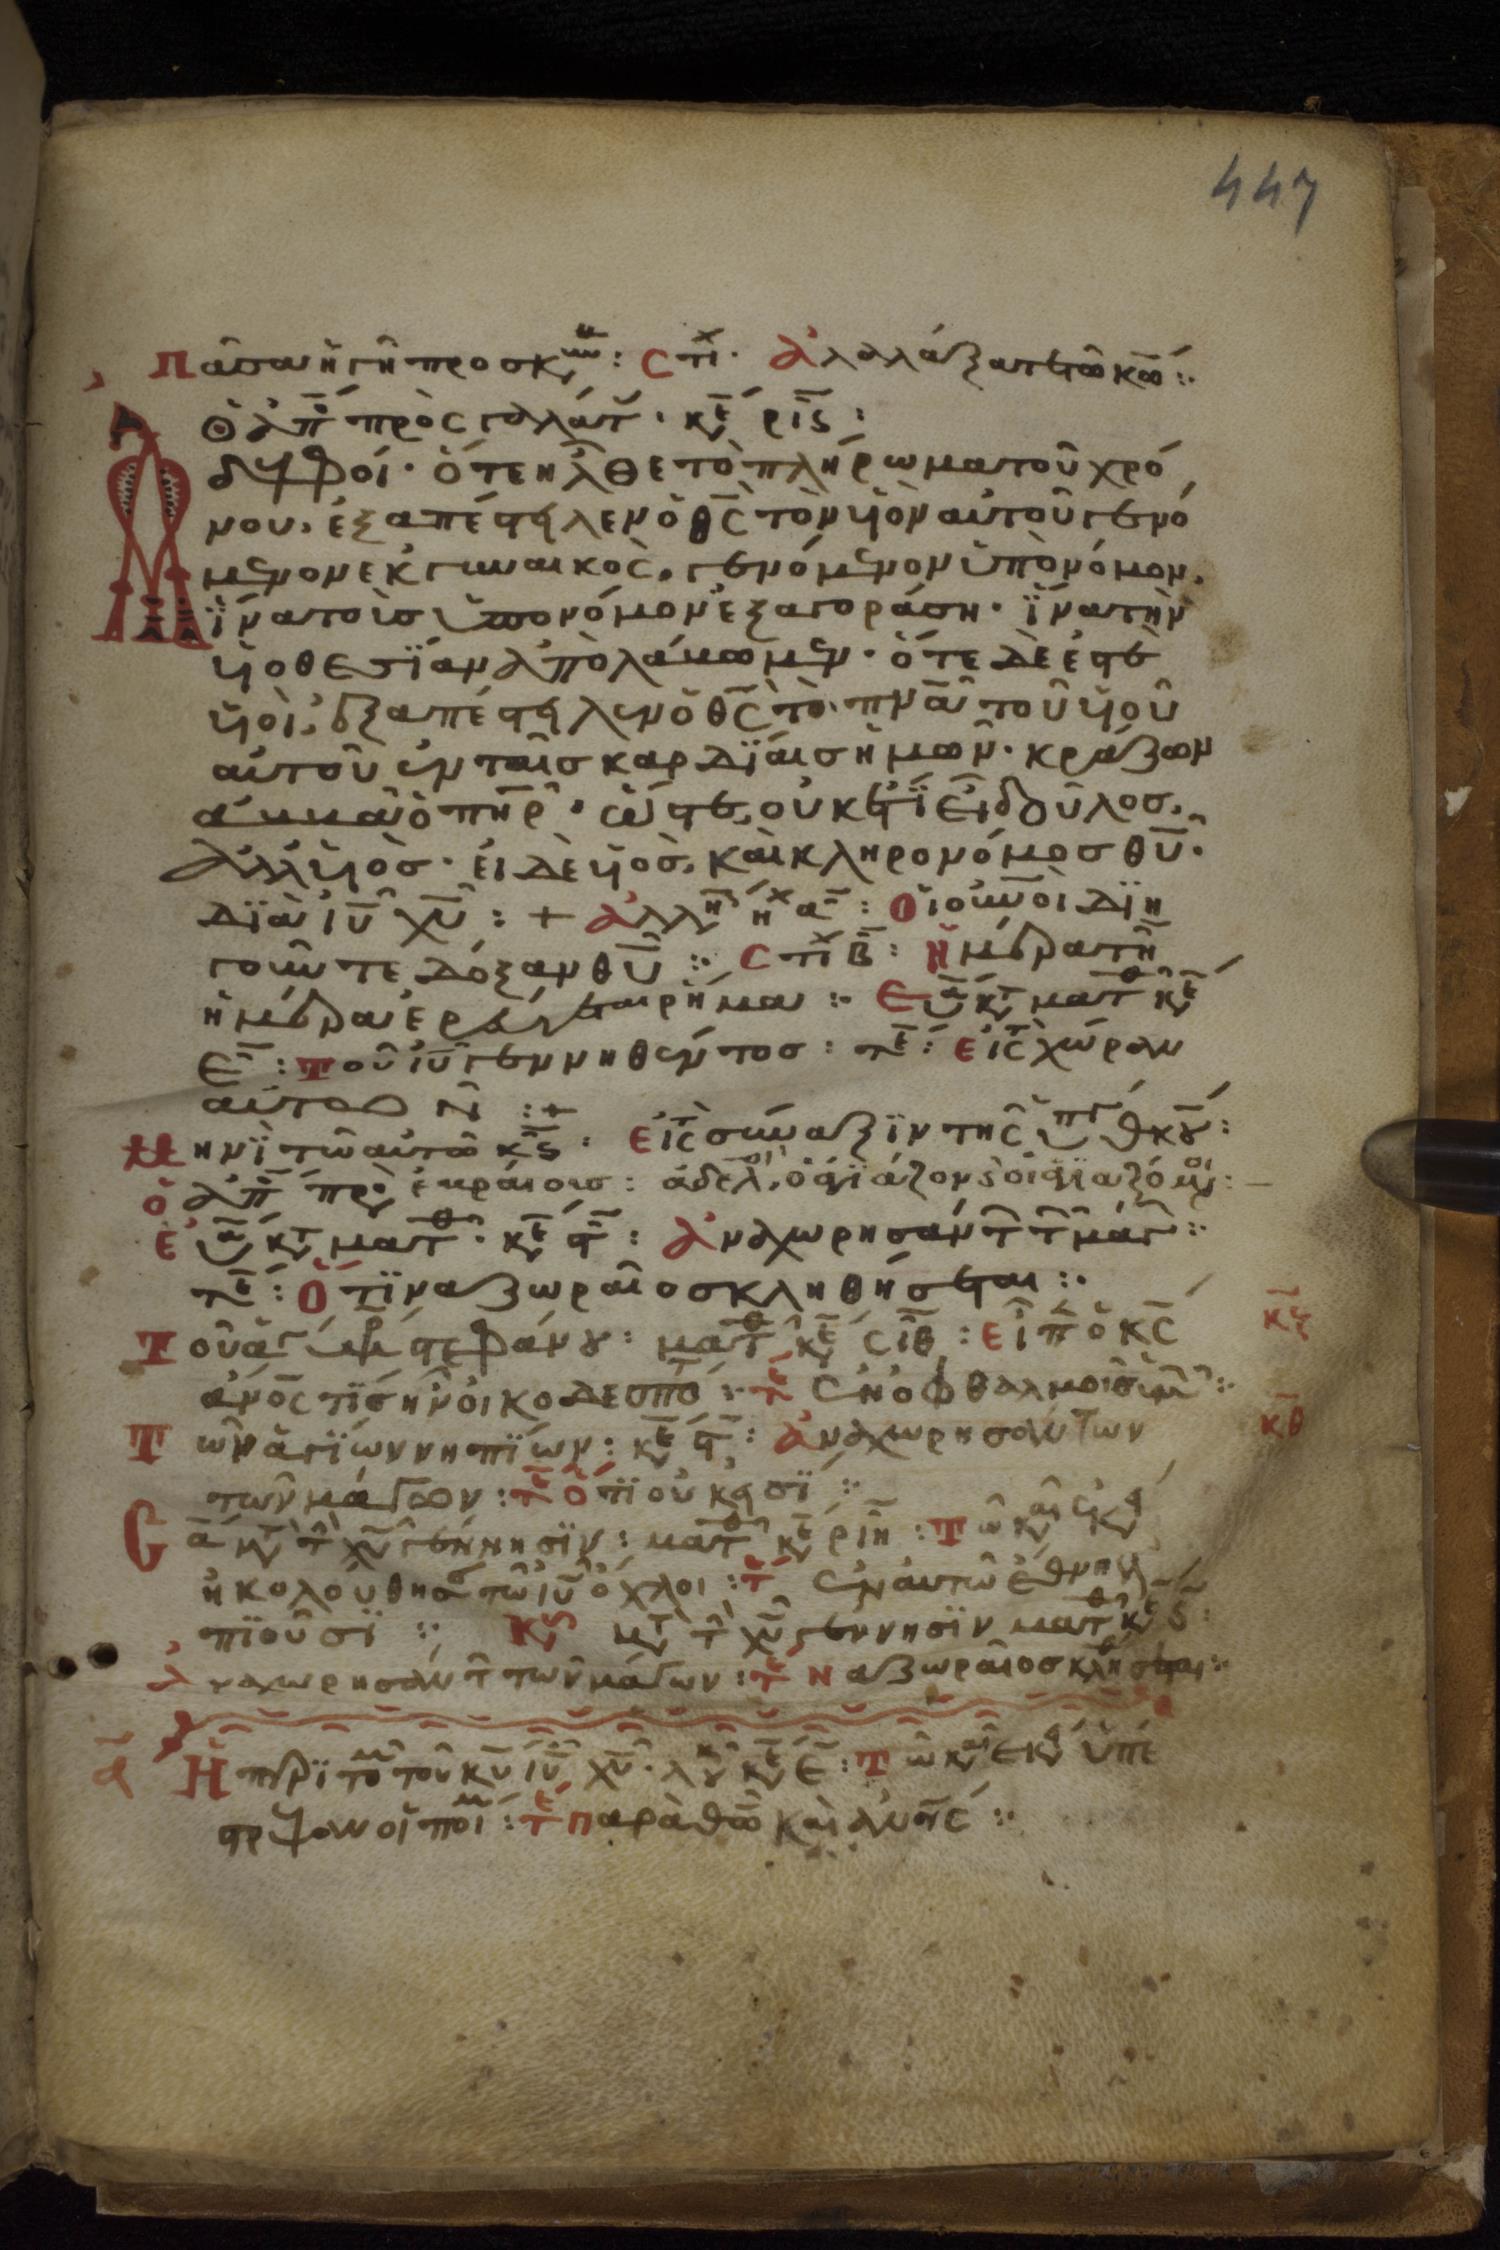 447
Πᾶσα ἡ γῆ προσκυν : Στι̅χ · Ἀλαλάξατε τῶ κ̅ω̅ :·
Ὁ ἀπο πρὸς γαλάτ · κε̅ ρις :
Ἀδελφοί · ὅτε ἦλθε τὸ πλήρωμα τοῦ χρό
νου, ἐξαπέστειλεν ὁ θ̅ς̅ τὸν υἱὸν αὐτοῦ γενό
μενον ἐκ γυναικός, γενόμενον ὑπὸ νόμον,
ἵνα τοὺς ὑπὸ νόμον ἐξαγοράση · ἵνα τὴν
υἱοθεσΐαν ἀπολάβωμεν · ὅτε δέ ἐστε
υἱοὶ, ἐξαπέστειλεν ὁ θ̅ς̅ τὸ π̅ν̅α̅ τοῦ υἱοῦ
αὐτοῦ ἐν ταῖς καρδΐαις ἡμῶν · κράζων
ἀββᾶ ὁ π̅η̅ρ̅ · ὥστε, οὐκέτϊ εἶ δοῦλος,
ἀλλ' υἱὸς · εἰ δὲ υἱὸς, καὶ κληρονόμος θ̅υ̅ ·
διὰ ι̅υ̅ χ̅υ̅ : + ἀλλη ηχ α : Οἱ οὐ̅ν̅οι διη
γοῦνται δόξαν θ̅υ̅ :· Στι̅χ β : Ἡμέρα τῆ
ἡμέρα ἐρεύγεται ρῆμα :· Εὐα κτ ματθ κε
ε : Τοῦ ι̅υ̅ γεννηθέντος : τε : εἰς τ χώραν
αὐτῶν :+
Μηνὶ τῶ αὐτῶ κ̅ς̅ : Εἰς τ σύναξιν τῆς ὑπ θκου :
Ὁ ἀπο προ ἑβραίους : ἀδελφοι, ὁ ἁγιάζων κ οἱ ἁγιαζόμενοι :
Εὐα κτ ματθ · κε στ : Ἀναχωρησάντ τ μάγ :·
τε : Ὅτι ναζωραῖος κληθήσεται :·
Τοῦ ἁγ στεφάνου : ματθ κε σιβ : εἶπ ὁ κ̅ς̅ κ̅ζ̅
ἄνος τις ἦν οἰκοδεσπο : τε ἐν ὀφθαλμοῖς ἡμ :·
Τῶν ἁγίων νηπίων : κε στ : Ἀναχωρησάντων κ̅θ̅
τῶν μάγων : τε ὅτι οὐκ εἰσϊ :·
Σα μτ τ χ̅υ̅ γέννησιν : ματθ κε ριη : Τῶ κ ἐκ
ἠκολούθησ τῶ ι̅υ̅ ὄχλοι : τε ἐν αὐτῶ ἔθνη ἐλ
πιοῦσϊ :· Κυ μτ τ χ̅υ̅ γέννησιν ματθ κε ς :
Ἀναχωρησάντ τῶν μάγων : τε Ναζωραῖος κληθήσεται :·
α Ἡ περὶ το τοῦ κ̅υ̅ ι̅υ̅ χ̅υ̅ · λου κε ε : Τῶ κ ἐκ ὑπέ
στρεψαν οἱ ποι : τε παρὰ θ̅ω̅ καὶ ἀνοις :·